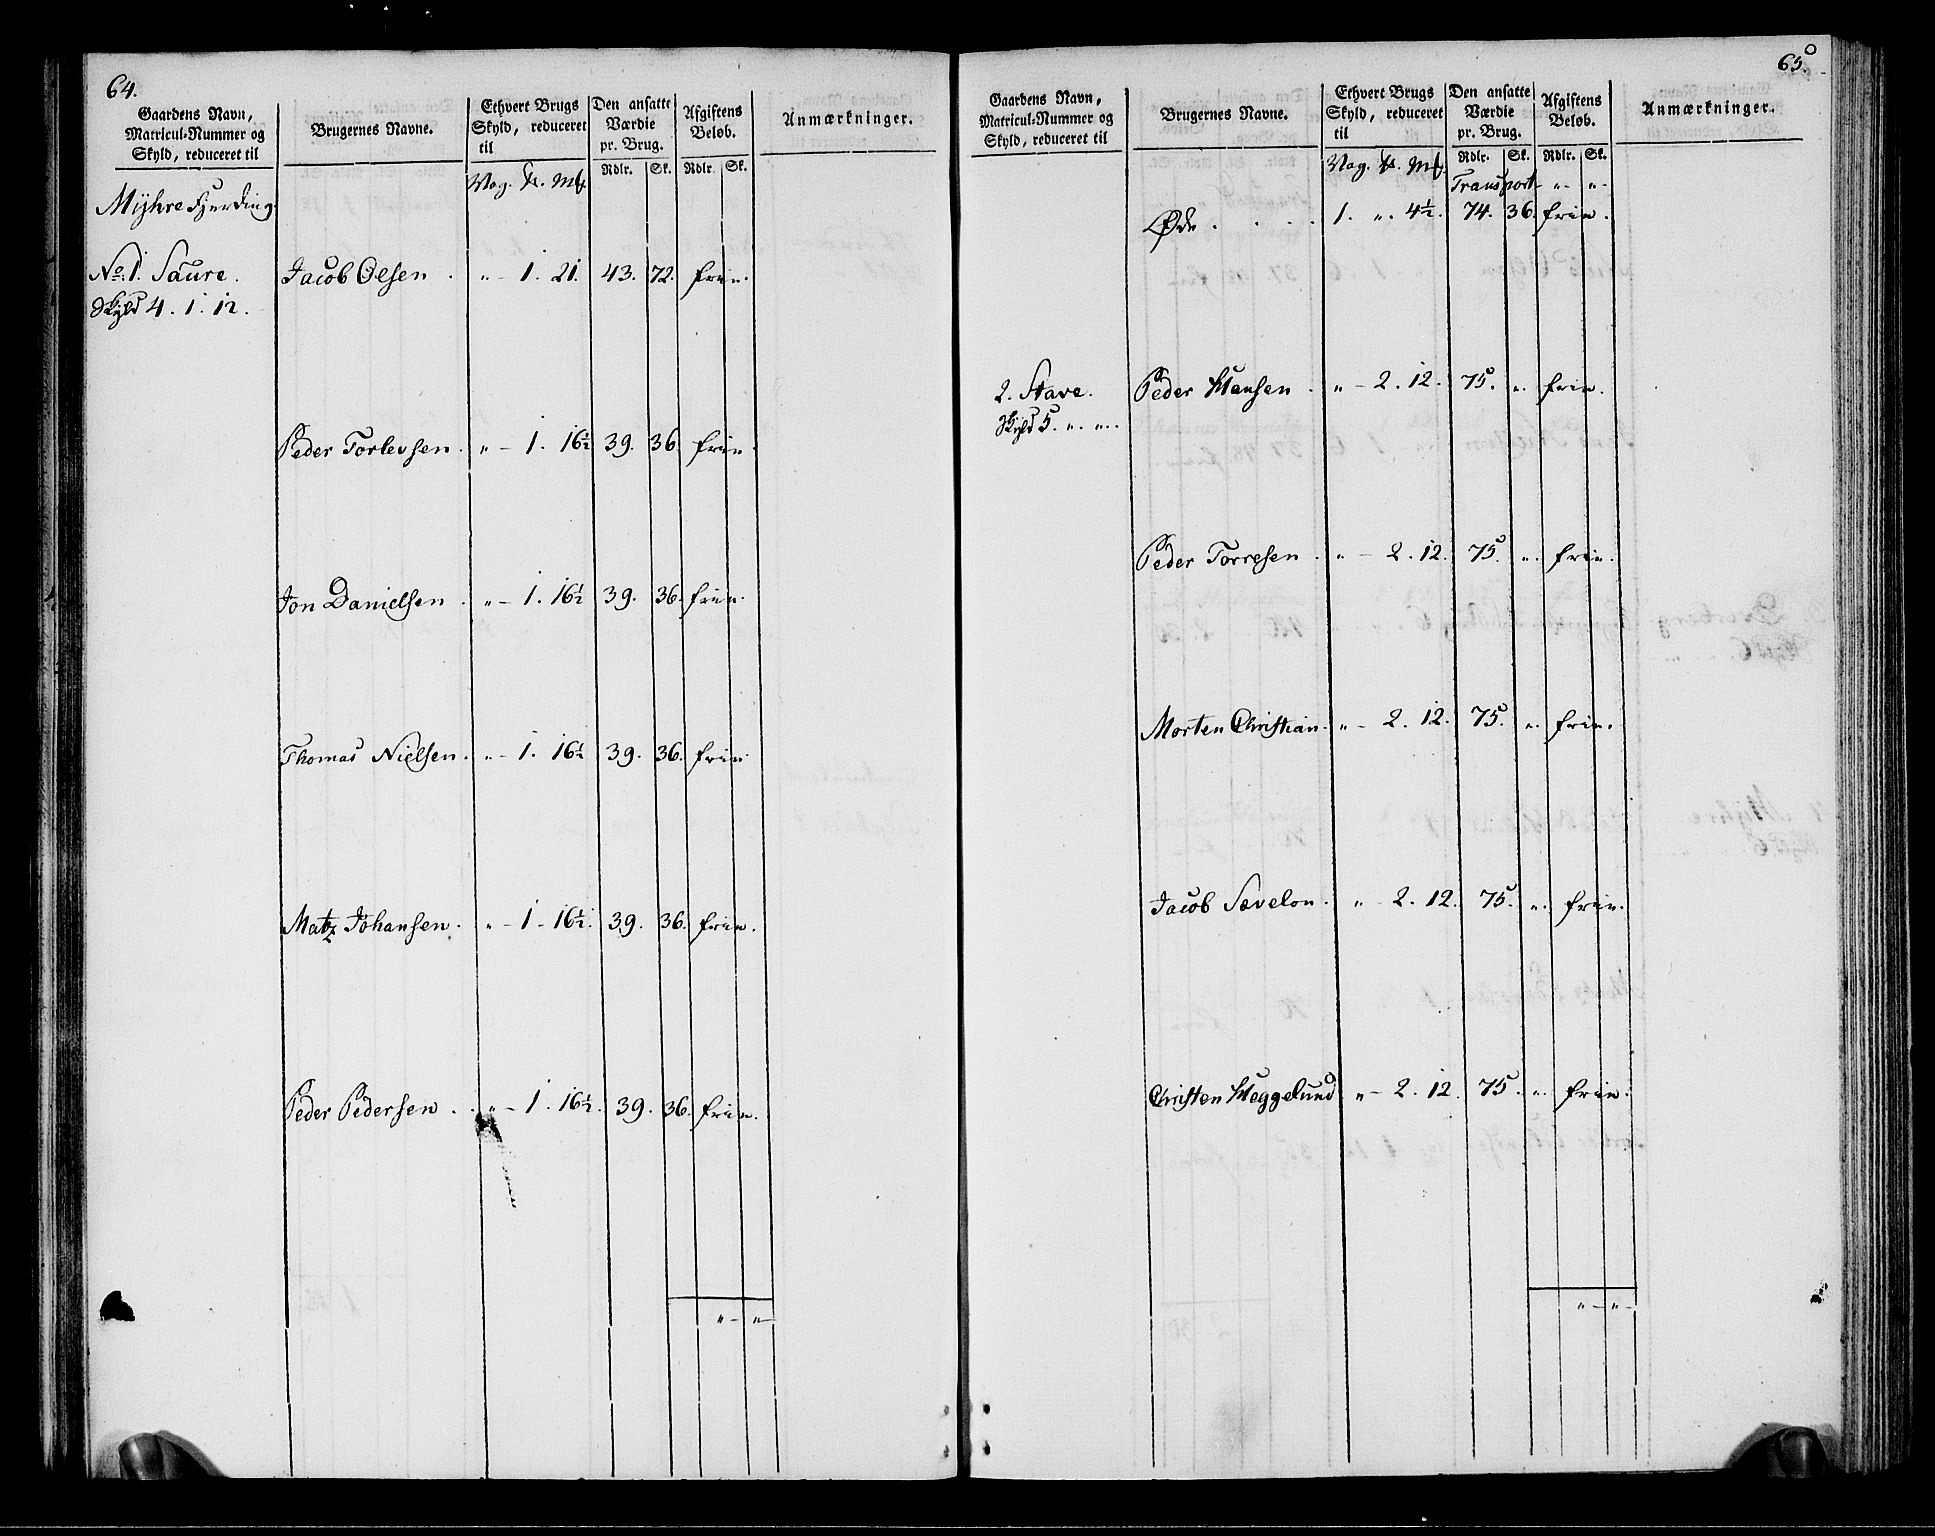 64.
Gaardens Navn, Matricul-Nummer og Skyld, reduceret til
Brugernes Navne.
Ethvert Brugs Skyld, reduceret til
Den ansatte Værdie pr. Brug.
Afgiftens Beløb.
Anmærkninger.
Vog. Mk.
Rdlr. Sk. Rdlr. Sk.
Myhre Fjerding.
No. 1. Saure. Jacob Olsen . „ - 1. 21. 43. 72. frie.
Skyld 4. 1. 12.
Peder Torlevsen. „ - 1. 16½ 39. 36. frie.
Jon Danielsen . „ - 1. 16½ 39. 36. frie.
Thomas Nielsen. „ - 1. 16½ 39. 36. frie.
Matz Johansen. „ - 1 - 16½. 39. 36. frie.
Peder Pedersen . „ - 1. 16½. 39. 36. frie.
„ - „ -
65.
Gaardens Navn, Matricul-Nummer og Skyld, reduceret til
Brugernes Navne.
Ethvert Brugs Skyld, reduceret til
Den ansatte Værdie pr. Brug.
Afgiftens Beløb.
Anmærkninger.
Vog. Mk.
Rdlr. Sk. Rdlr. Sk.
Transport - „ - „ -
Øde . . . 1. „. 4½. 74. 36. frie.
2. Stave. Peder Hansen . „ - 2. 12. 75. „. frie.
Skyld 5. „. „.
Peder Torresen . „ - 2. 12. 75. „. frie.
Morten Christian. „ - 2. 12. 75. „. frie.
Jacob Sævelon. „ - 2. 12. 75. „. frie.
Christen Heggelund „ - 2. 12. 75. „. frie.
„ - „ -